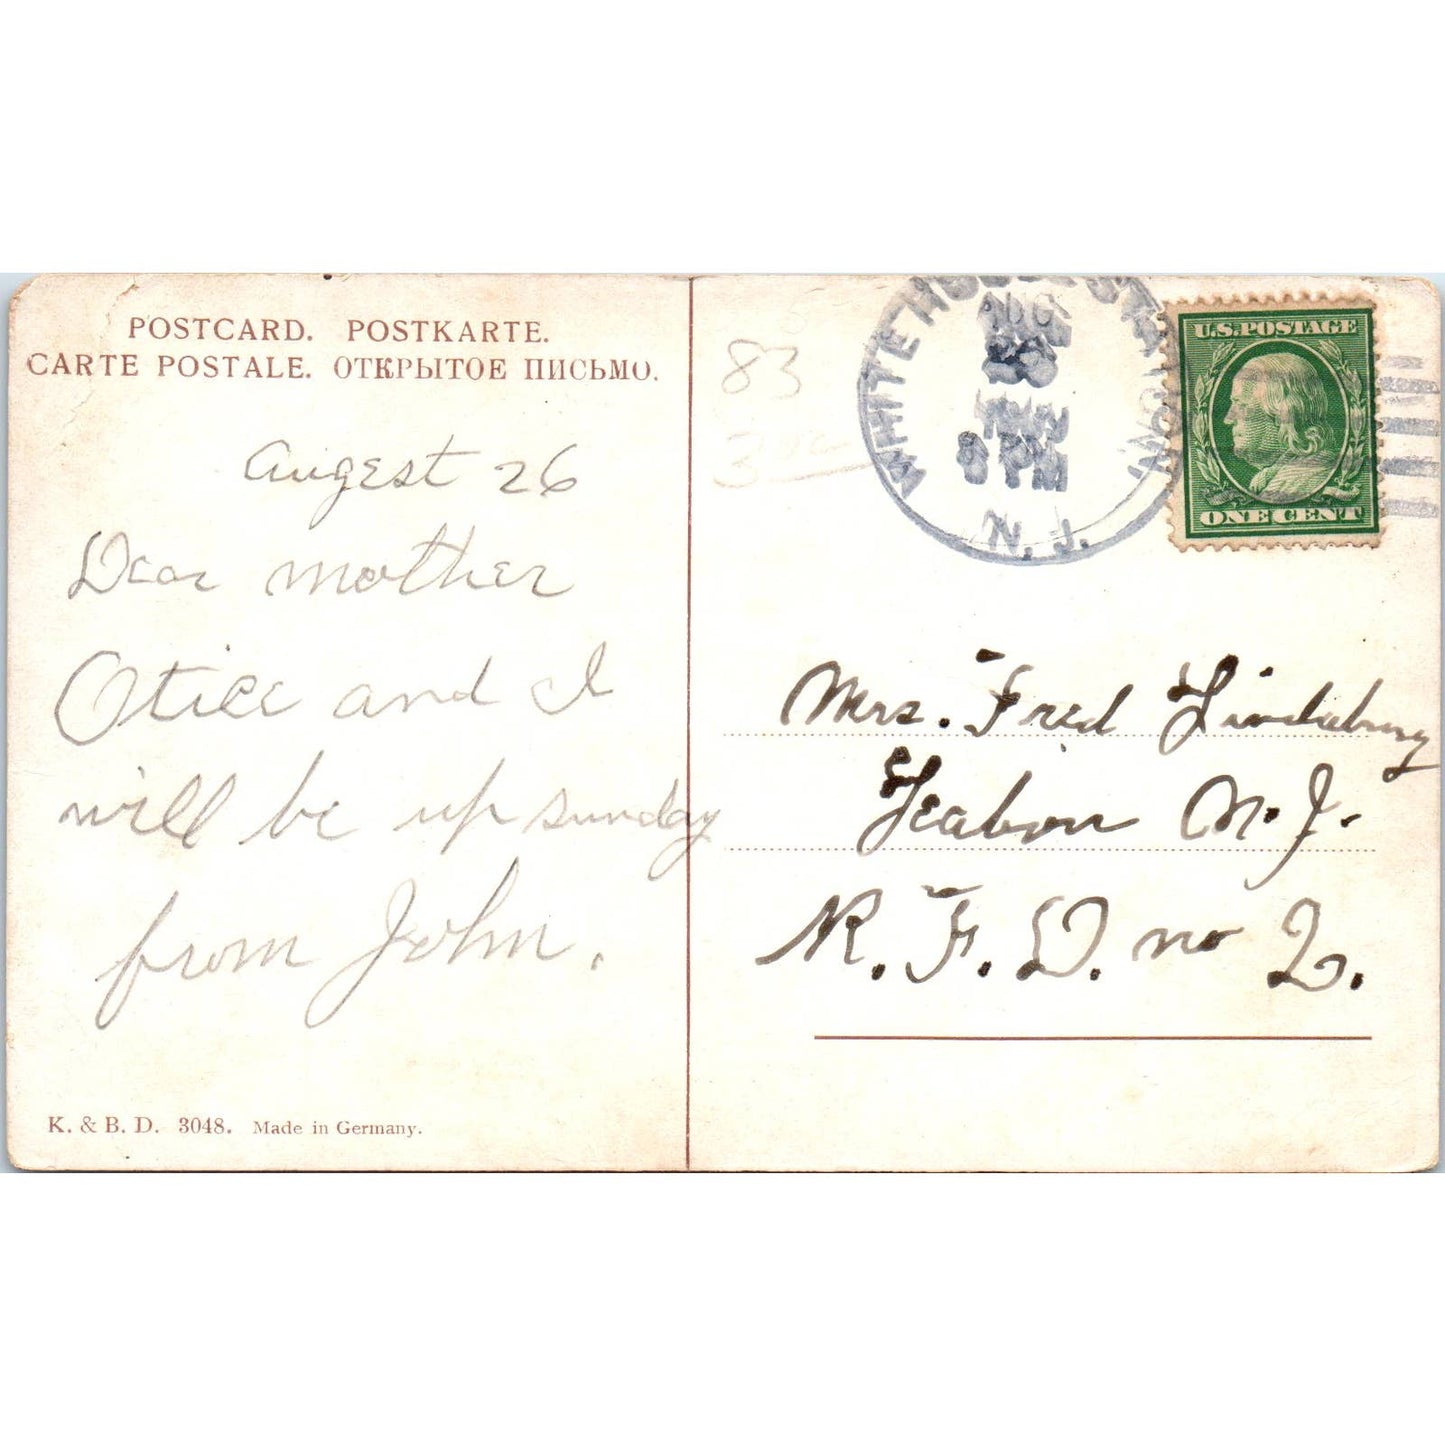 POSTCARD. POSTKARTE.
CARTE POSTALE. ОТКРЫТОЕ ПИСЬМО.
Augest 26
Dear mother
and I
will be up sunday
from John.
K. & B. D. 3048. Made in Germany.
83
WHITE HOUSE STATION
AUG
26
8 PM
N. J.
U.S. POSTAGE
ONE CENT
Mrs. Fred Lindabury
N. J.
R. F. D. no 2.